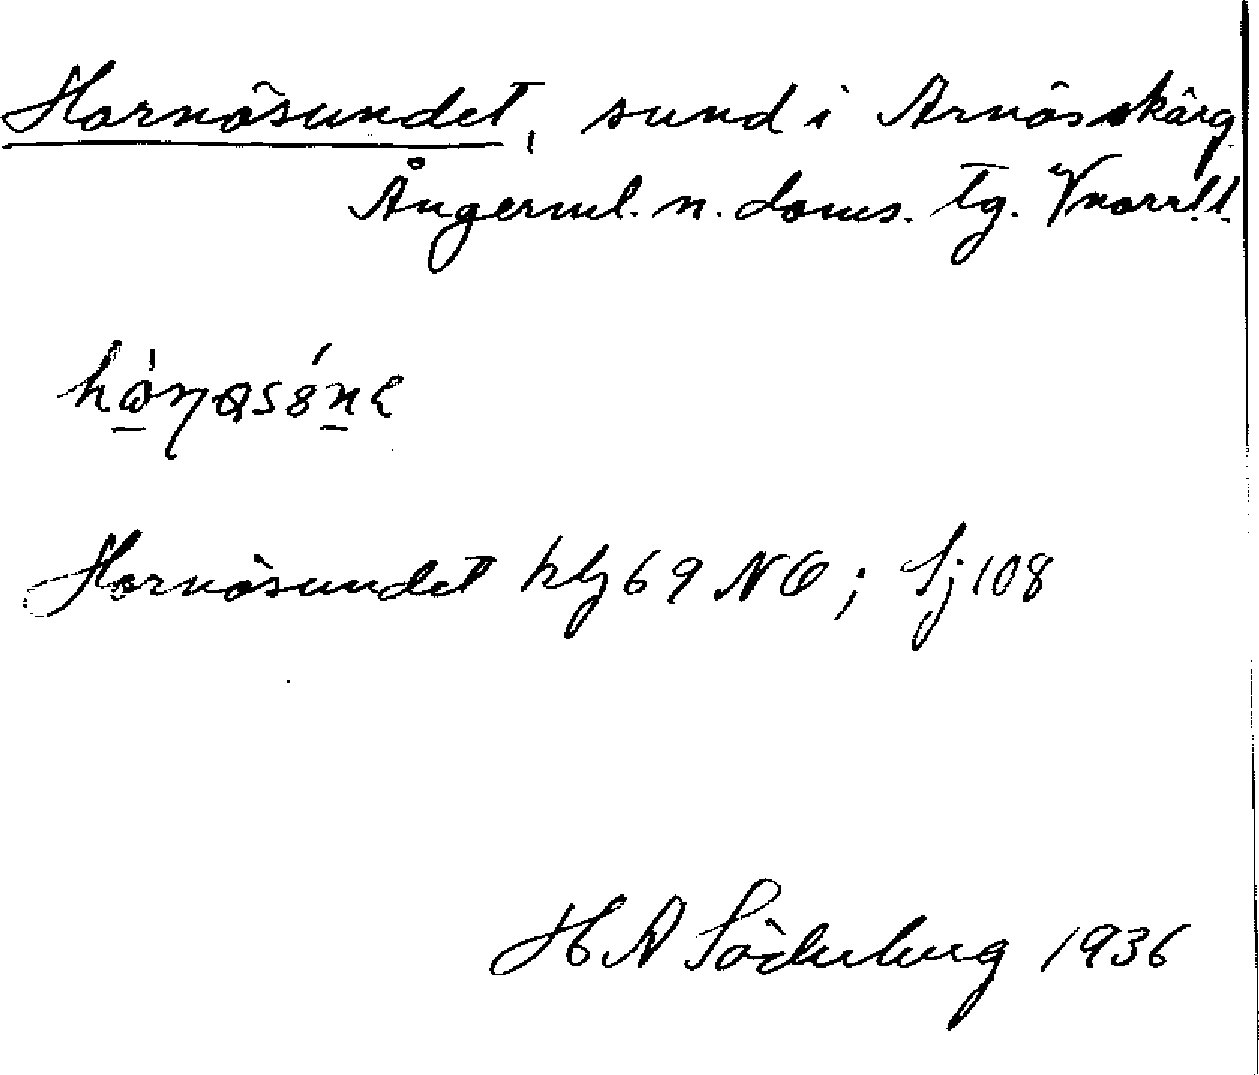 Hornösundet, sund i Arnäs skärg
Ångerml. n. doms. tg. Vnorrl. l.
Hornösundet hlj 69 NO; Sj 108
H A Söderberg 1936